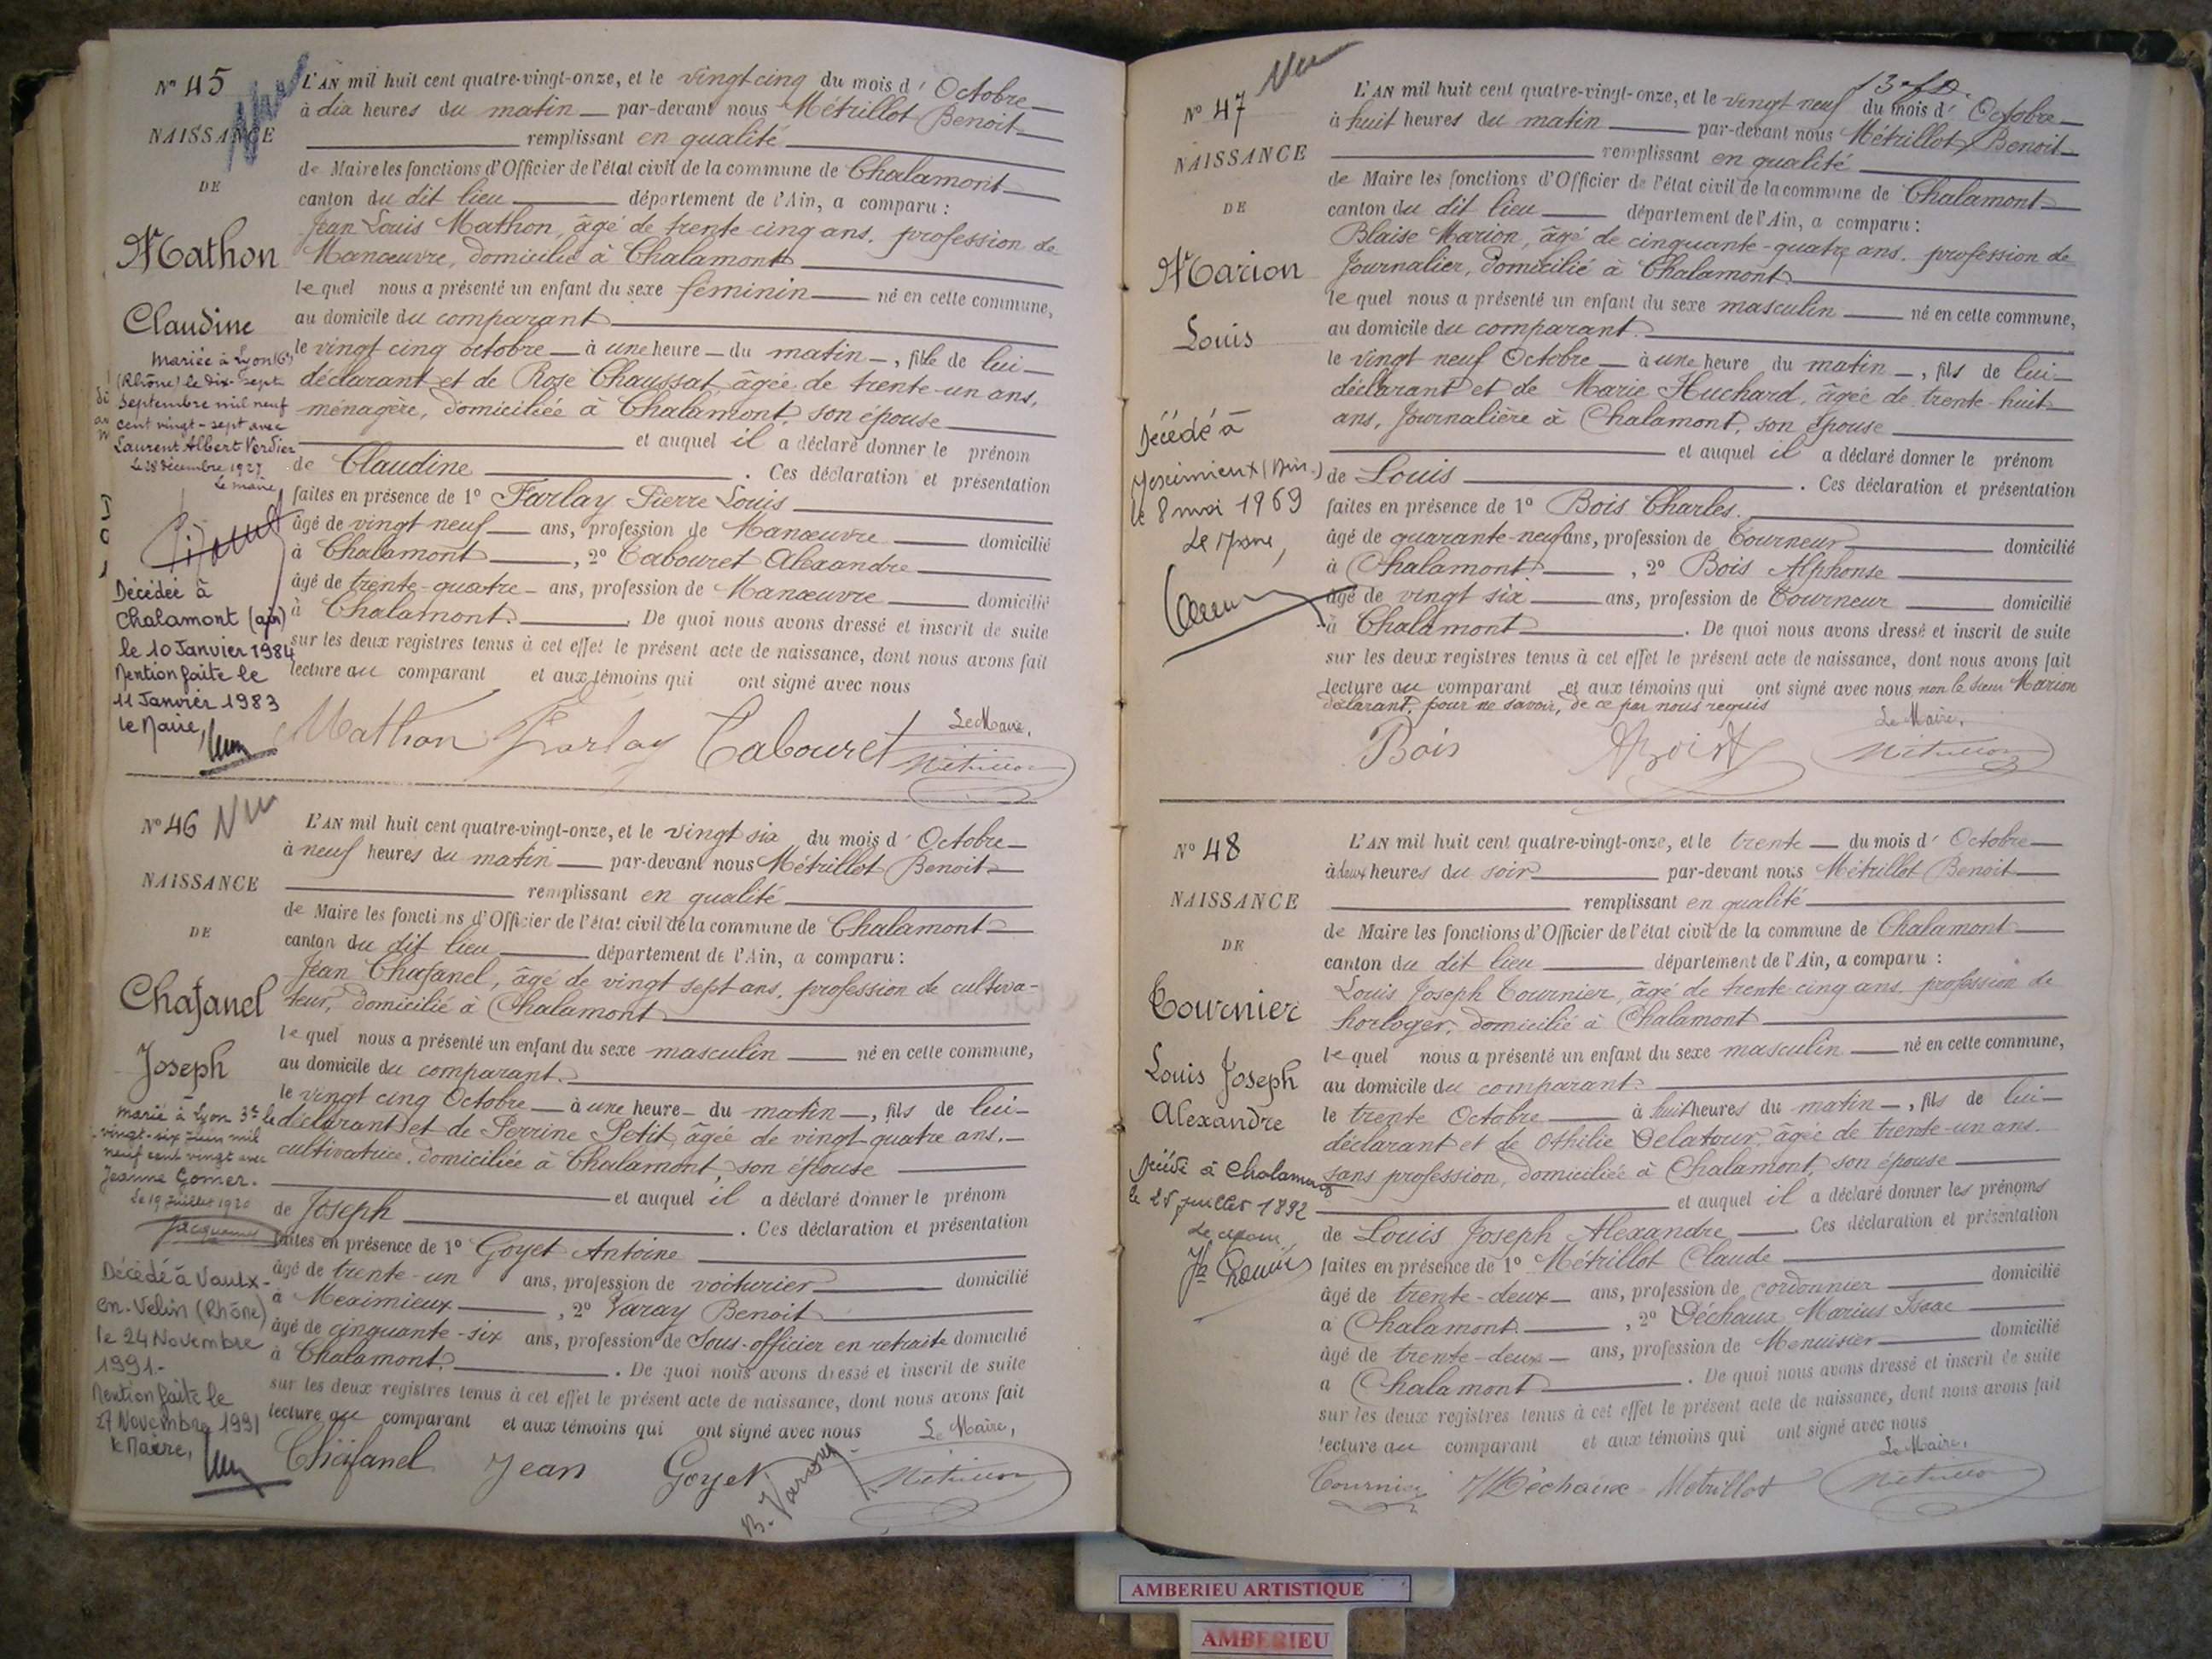 N° 45
L'AN mil huit cent quatre-vingt-onze, et le vingt cinq du mois d'Octobre
à dix heures du matin par-devant nous Métrillot Benoit
NAISSANCE
remplissant en qualité
de Maire les fonctions d'Officier de l'état civil de la commune de Chalamont
DE
canton du dit lieu département de l'Ain, a comparu :
Jean Louis Mathon, âgé de trente cinq ans, profession de
Mathon
Manœuvre, domicilié à Chalamont
lequel nous a présenté un enfant du sexe féminin né en cette commune,
Claudine
au domicile du comparant
le vingt cinq octobre à une heure du matin, fille de lui
déclarant et de Rose Chaussat âgée de trente-un ans,
ménagère, domiciliée à Chalamont, son épouse
et auquel il a déclaré donner le prénom
de Claudine. Ces déclaration et présentation
faites en présence de 1° Farlay Pierre Louis
âgé de vingt neuf ans, profession de Manœuvre domicilié
à Chalamont, 2° Tabouret Alexandre
âgé de trente-quatre ans, profession de Manœuvre domicilié
à Chalamont. De quoi nous avons dressé et inscrit de suite
sur les deux registres tenus à cet effet le présent acte de naissance, dont nous avons fait
lecture au comparant et aux témoins qui ont signé avec nous
Mariée à Lyon (6e)
(Rhône) le dix-sept
Septembre mil neuf
cent vingt-sept avec
Laurent Albert Verdier
Le 28 décembre 1927
Le maire
Décédée à
Chalamont (ain)
le 10 Janvier 1984
Mention faite le
11 Janvier 1983
le Maire,
Mathon Farlay Tabouret Le Maire,
Métrillot
N° 46 Vu
L'AN mil huit cent quatre-vingt-onze, et le vingt six du mois d'Octobre
à neuf heures du matin par-devant nous Métrillot Benoit
NAISSANCE
remplissant en qualité
de Maire les fonctions d'Officier de l'état civil de la commune de Chalamont
DE
canton du dit lieu département de l'Ain, a comparu :
Jean Chafanel, âgé de vingt sept ans, profession de cultiva-
Chafanel
teur, domicilié à Chalamont
lequel nous a présenté un enfant du sexe masculin né en cette commune,
Joseph
au domicile du comparant.
le vingt cinq Octobre à une heure du matin, fils de lui
déclarant et de Perrine Petit, âgée de vingt quatre ans,
cultivatrice, domiciliée à Chalamont, son épouse
et auquel il a déclaré donner le prénom
de Joseph. Ces déclaration et présentation
faites en présence de 1° Goyet Antoine
âgé de trente-un ans, profession de voiturier domicilié
à Meximieux, 2° Varay Benoit
âgé de cinquante-six ans, profession de Sous-officier en retraite domicilié
à Chalamont. De quoi nous avons dressé et inscrit de suite
sur les deux registres tenus à cet effet le présent acte de naissance, dont nous avons fait
lecture au comparant et aux témoins qui ont signé avec nous
Marié à Lyon 3e le
vingt-six juin mil
neuf cent vingt avec
Jeanne Gomer.
Le 19 juillet 1920
Décédé à Vaulx-
en-Velin (Rhône)
le 24 Novembre
1991.
Mention faite le
27 Novembre 1991
le Maire,
Le Maire,
Chafanel Jean Goyet B. Varay Métrillot
N° 47 Vu
L'AN mil huit cent quatre-vingt-onze, et le vingt neuf du mois d'Octobre
à huit heures du matin par-devant nous Métrillot Benoit
NAISSANCE
remplissant en qualité
de Maire les fonctions d'Officier de l'état civil de la commune de Chalamont
DE
canton du dit lieu département de l'Ain, a comparu :
Blaise Marion, âgé de cinquante-quatre ans, profession de
Marion
Journalier, domicilié à Chalamont
lequel nous a présenté un enfant du sexe masculin né en cette commune,
Louis
au domicile du comparant.
le vingt neuf Octobre à une heure du matin, fils de lui
déclarant et de Marie Huchard, âgée de trente-huit
ans, Journalière à Chalamont, son épouse
et auquel il a déclaré donner le prénom
de Louis. Ces déclaration et présentation
faites en présence de 1° Bois Charles.
âgé de quarante-neuf ans, profession de Tourneur domicilié
à Chalamont, 2° Bois Alphonse
âgé de vingt six ans, profession de Tourneur domicilié
à Chalamont. De quoi nous avons dressé et inscrit de suite
sur les deux registres tenus à cet effet le présent acte de naissance, dont nous avons fait
lecture au comparant et aux témoins qui ont signé avec nous non le sieur Marion
déclarant, pour ne savoir, de ce par nous requis
Décédé à
le 8 mai 1969
Le Maire,
Le Maire,
Bois ABois Métrillot
N° 48
L'AN mil huit cent quatre-vingt-onze, et le trente du mois d'Octobre
à deux heures du soir par-devant nous Métrillot Benoit
NAISSANCE
remplissant en qualité
de Maire les fonctions d'Officier de l'état civil de la commune de Chalamont
DE
canton du dit lieu département de l'Ain, a comparu :
Louis Joseph Tournier, âgé de trente cinq ans, profession de
Tournier
horloger, domicilié à Chalamont
lequel nous a présenté un enfant du sexe masculin né en cette commune,
Louis Joseph
au domicile du comparant.
Alexandre
le trente Octobre à huit heures du matin, fils de lui
déclarant et de Othilie Delatour, âgée de trente-un ans,
sans profession, domiciliée à Chalamont, son épouse
et auquel il a déclaré donner les prénoms
de Louis Joseph Alexandre. Ces déclaration et présentation
faites en présence de 1° Métrillot Claude
âgé de trente-deux ans, profession de cordonnier domicilié
à Chalamont, 2° Déchaux Marius Isaac
âgé de trente-deux ans, profession de Menuisier domicilié
à Chalamont. De quoi nous avons dressé et inscrit de suite
sur les deux registres tenus à cet effet le présent acte de naissance, dont nous avons fait
lecture au comparant et aux témoins qui ont signé avec nous
Décédé à Chalamont
le 25 juillet 1892
Le Maire,
Tournier Déchaux Métrillot Métrillot
AMBERIEU ARTISTIQUE
AMBERIEU